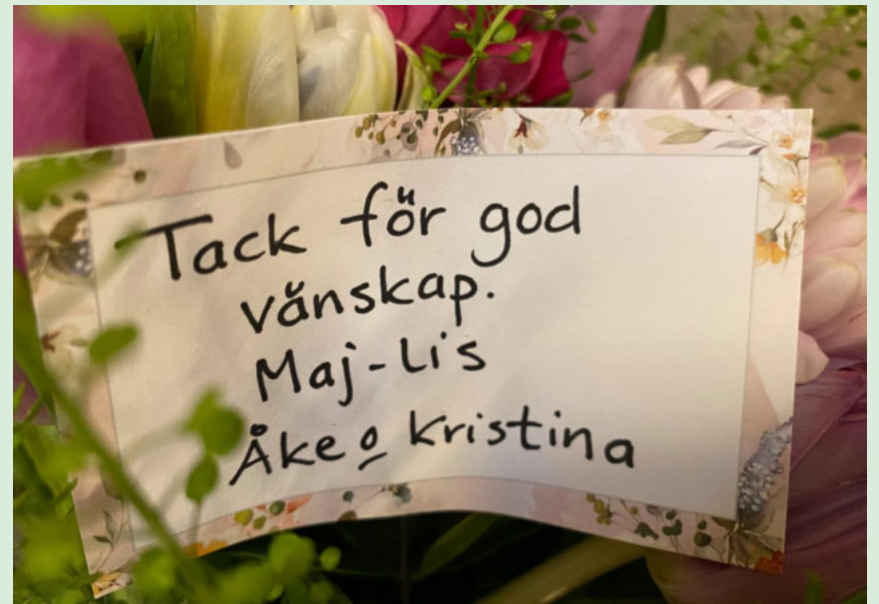 Tack för god
vänskap.
Maj-Lis
Åke o Kristina